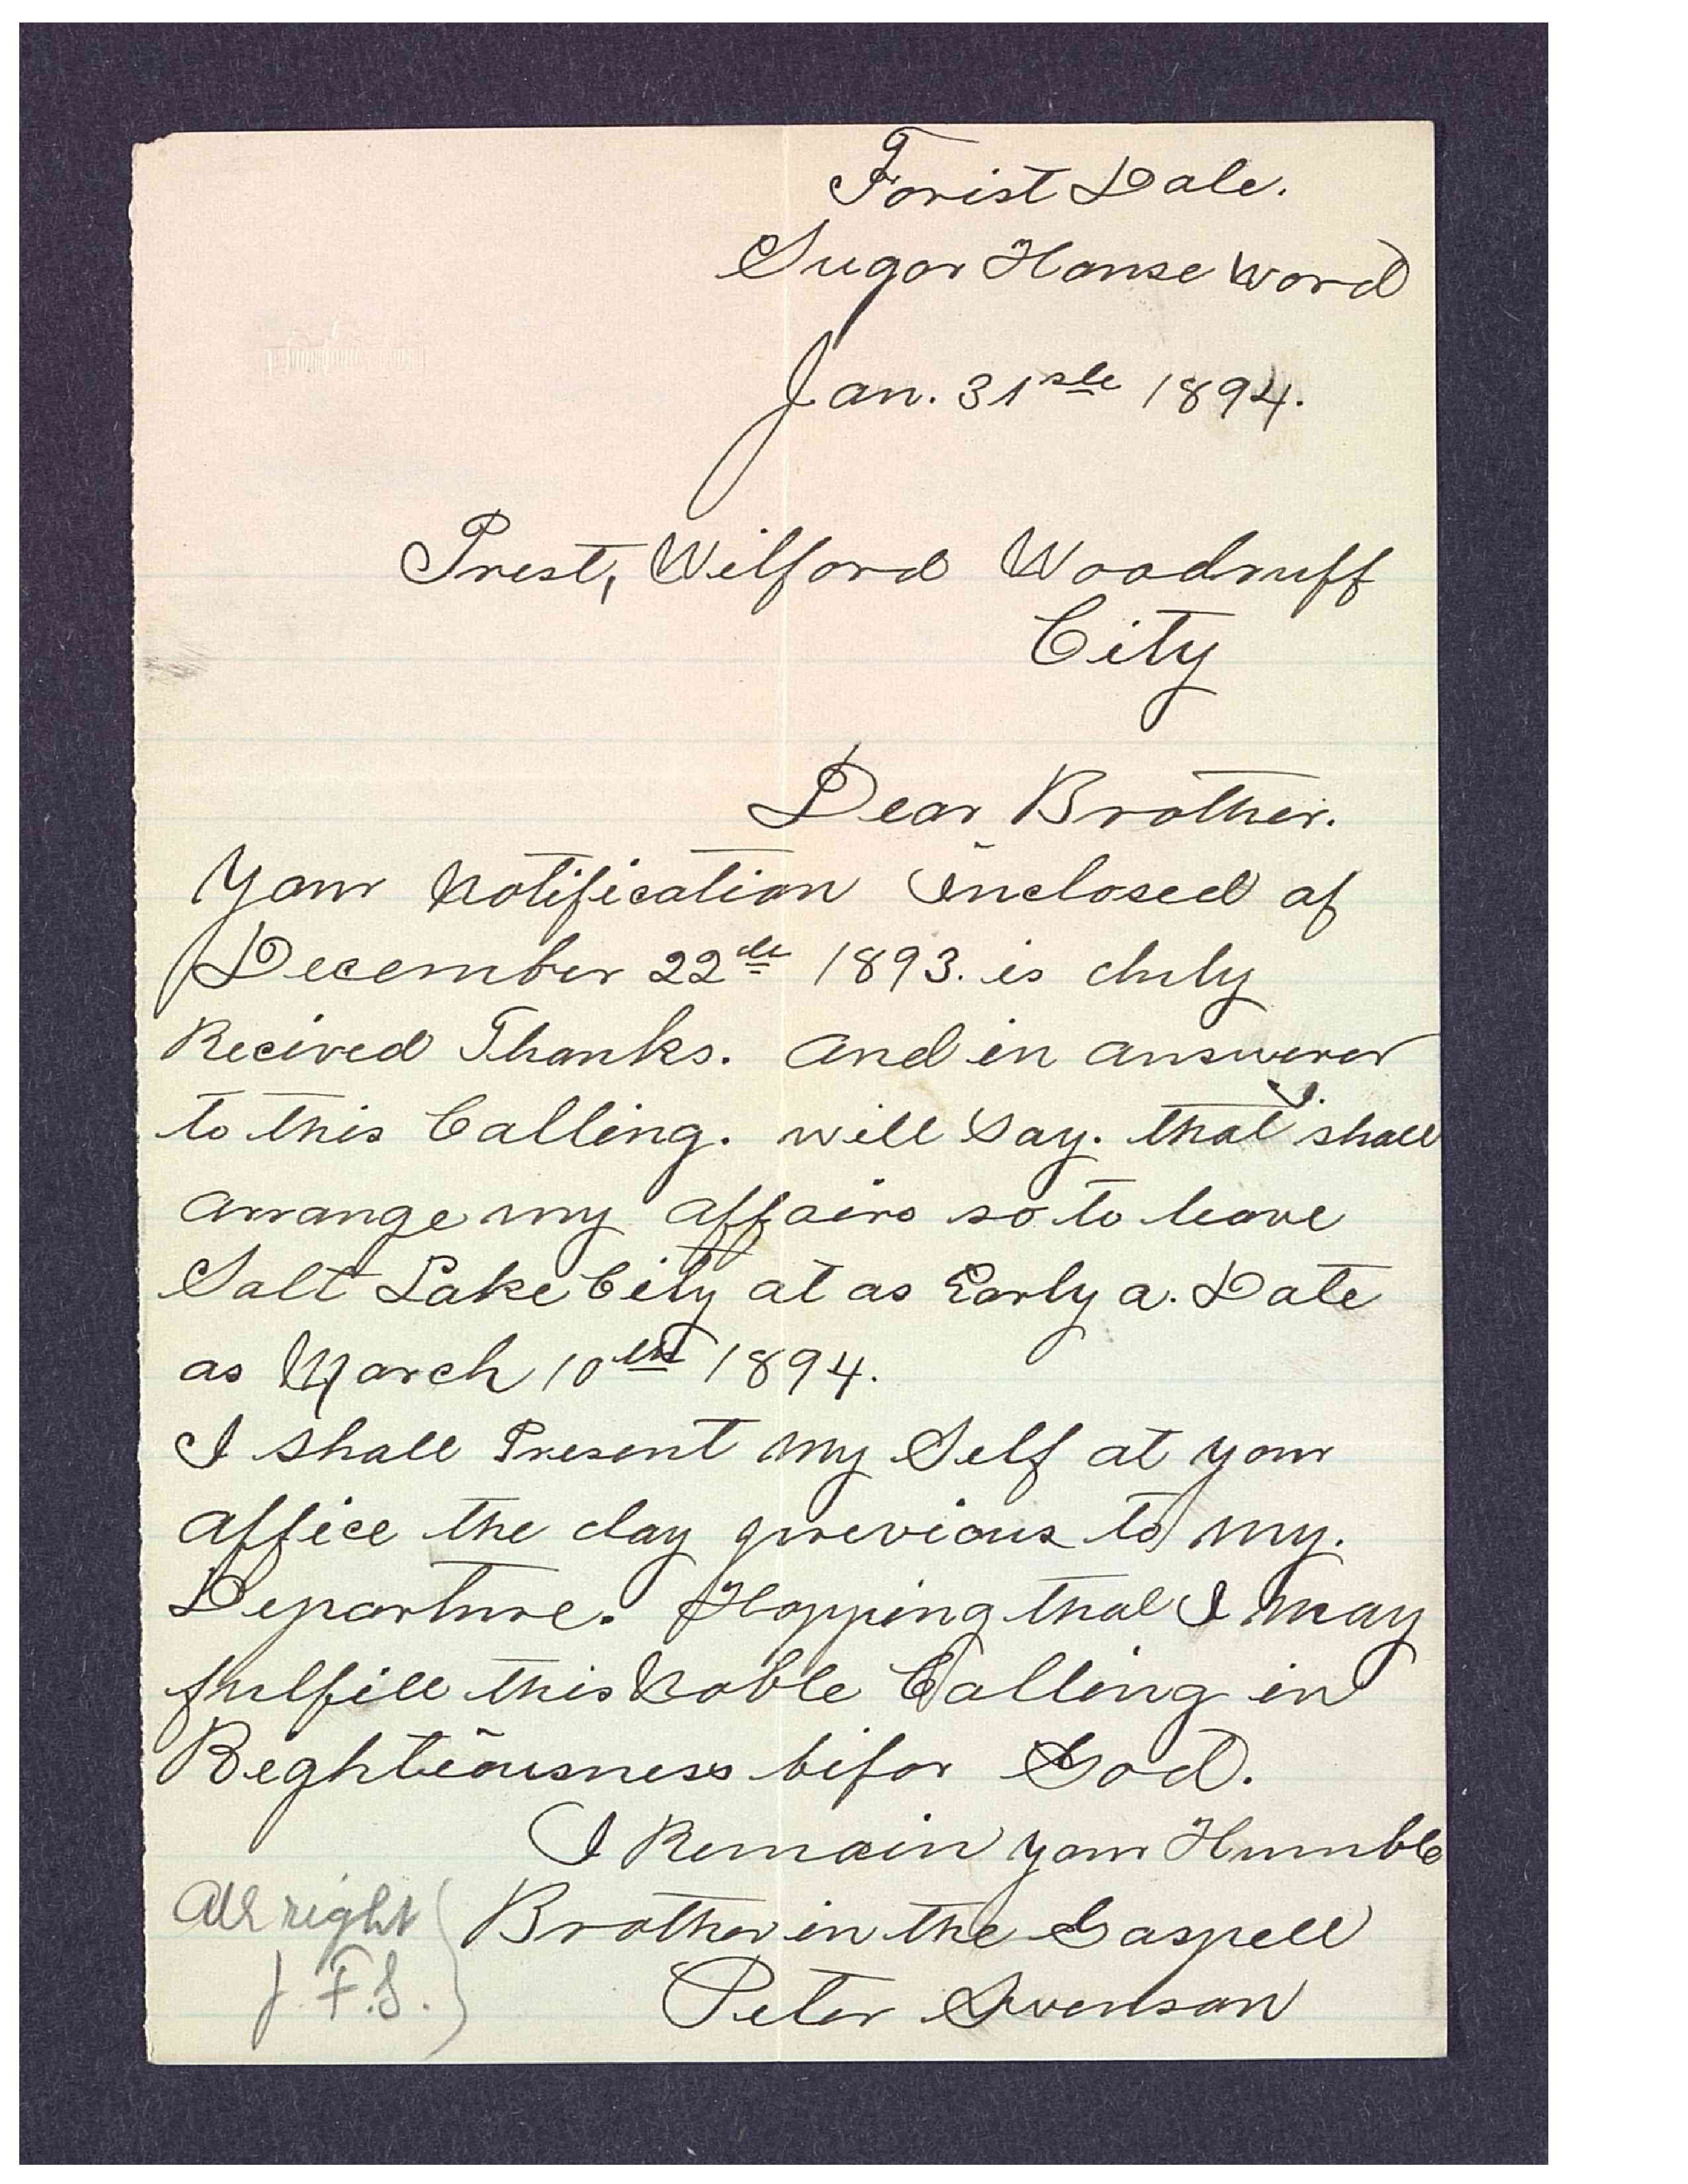 Forist Dale.
Sugar House Ward
Jan. 31ste 1894.
Prest, Wilford Woodruff
City
Dear Brother.
Your Notification Inclosed of
December 22de 1893. is duly
Recived Thanks. And in answerer
to this Calling. will Say. that I. shall
arrange my affairs so to leave
Salt Lake City at as Early a. Date
as March 10th 1894.
I shall Present my Self at your
office the day previous to my.
Departure. Hopping that I may
fulfill this Noble Calling in
Reghtiousness bifor God.
I Remain your Humble
Brother in the Gospell
Peter Swenson
All right
J. F. S.